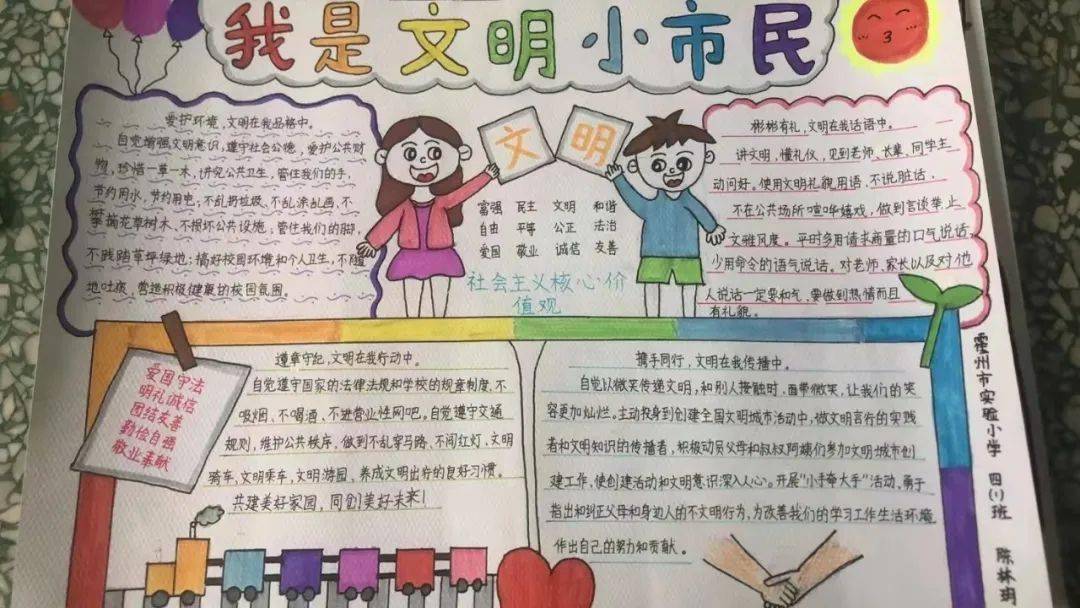 我是文明小市民
爱护环境,文明在我品格中。
自觉增强文明意识,遵守社会公德,爱护公共财
物,珍惜一草一木,讲究公共卫生,管住我们的手,
节约用水,节约用电;不乱扔垃圾、不乱涂乱画、不
攀摘花草树木、不损坏公共设施;管住我们的脚,
不践踏草坪绿地;搞好校园环境和个人卫生,不随
地吐痰,营造积极健康的校园氛围。
文明
富强 民主 文明 和谐
自由 平等 公正 法治
爱国 敬业 诚信 友善
社会主义核心价
值观
彬彬有礼,文明在我话语中。
讲文明,懂礼仪,见到老师、长辈、同学主
动问好。使用文明礼貌用语,不说脏话,
不在公共场所喧哗嬉戏,做到言谈举止
文雅风度。平时多用请求商量的口气说话,
少用命令的语气说话。对老师、家长以及对他
人说话一定要和气,要做到热情而且
有礼貌。
爱国守法
明礼诚信
团结友善
勤俭自强
敬业奉献
遵章守纪,文明在我行动中。
自觉遵守国家的法律法规和学校的规章制度,不
吸烟、不喝酒、不进营业性网吧。自觉遵守交通
规则,维护公共秩序,做到不乱穿马路、不闯红灯,文明
骑车,文明乘车,文明游园、养成文明出行的良好习惯。
共建美好家园,同创美好未来!
携手同行,文明在我传播中。
自觉以微笑传递文明,和别人接触时,面带微笑,让我们的笑
容更加灿烂。主动投身到创建全国文明城市活动中,做文明言行的实践
者和文明知识的传播者,积极动员父母和叔叔阿姨们参加文明城市创
建工作,使创建活动和文明意识深入人心。开展"小手牵大手"活动,勇于
指出和纠正父母和身边人的不文明行为,为改善我们的学习工作生活环境
作出自己的努力和贡献。
霍州市实验小学 四(1)班 陈林玥